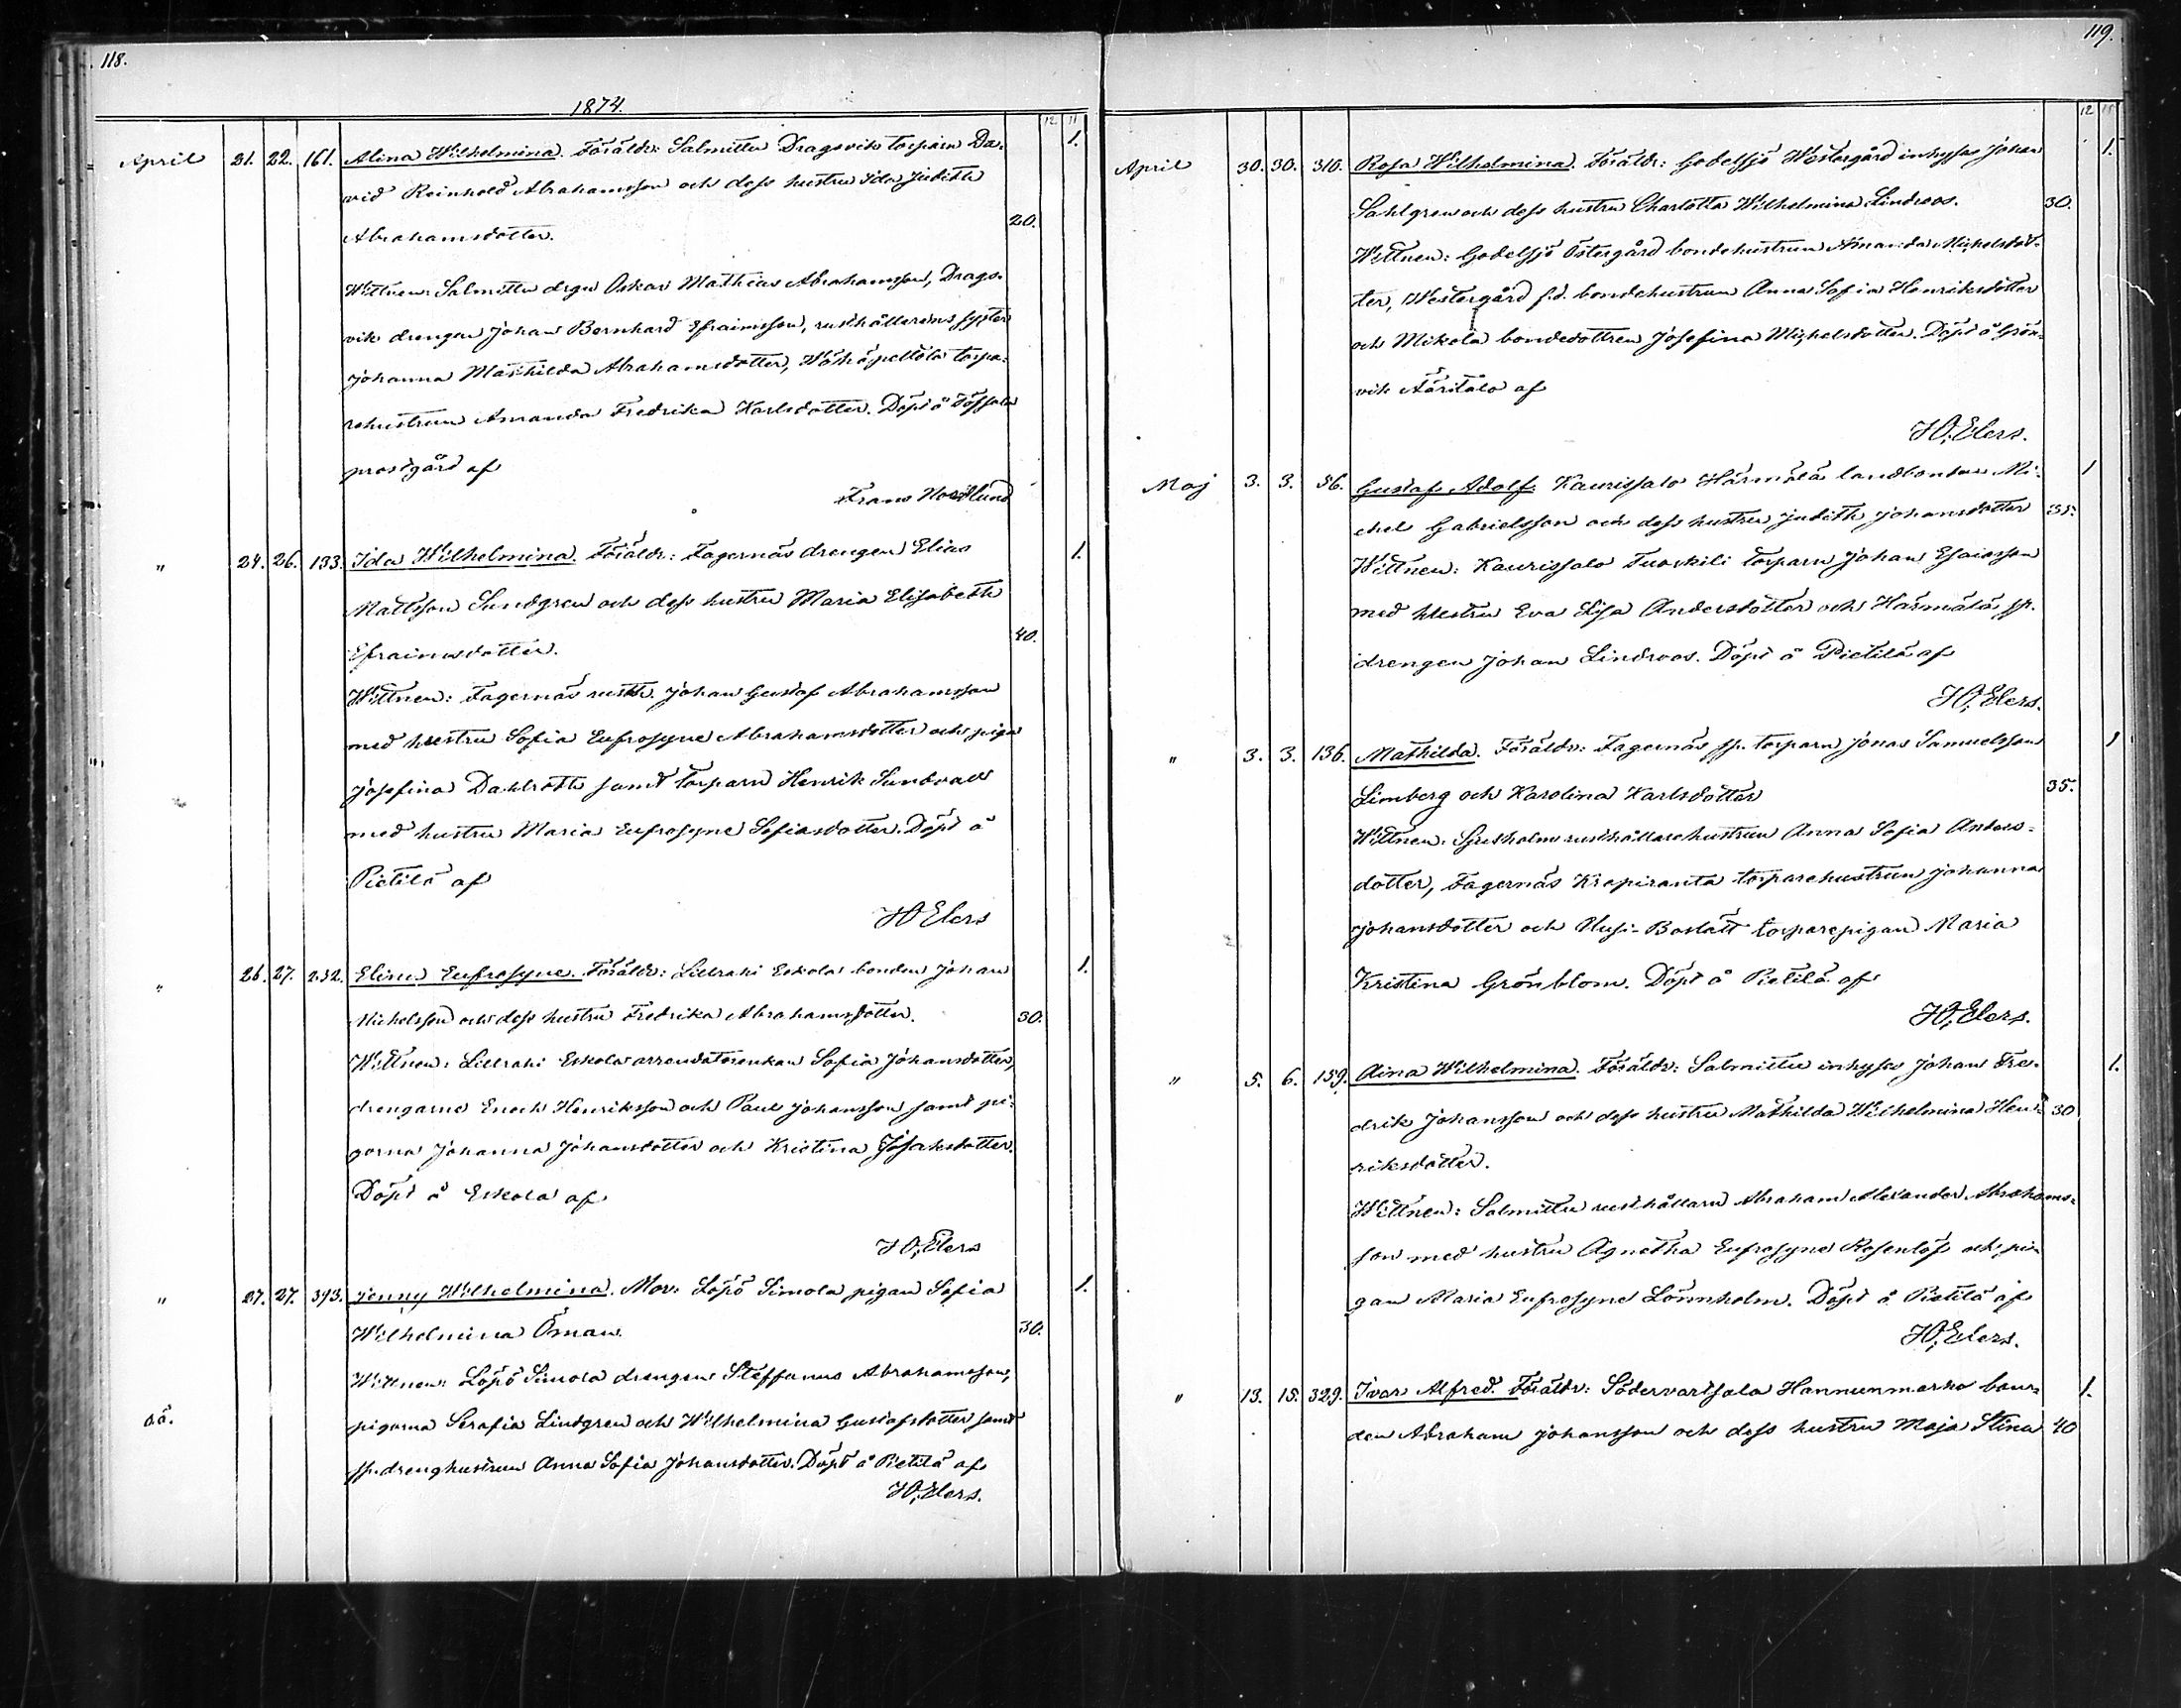 118.
1874.
12 11
April 21. 22. 161. Alina Wilhelmina. Föräldr: Salmittu Dragsvik torparn Da- 1.
vid Reinhold Abrahamsson och dess hustru Ida Judith
Abrahamsdotter. 20.
Wittnen: Salmittu drgn Oskar Mathias Abrahamsson, Drags-
vik drengen Johan Bernhard Efraimsson, rusthållarens syster
Johanna Mathilda Abrahamsdotter, torpa-
rehustrun Amanda Fredrika Karlsdotter. Döpt å
prostgård af
Frans Nordlund
" 24. 26. 133. Ida Wilhelmina. Föräldr: Fagernäs drengen Elias 1.
Mattsson Sundgren och dess hustru Maria Elisabeth
Efraimsdotter. 40.
Wittnen: Fagernäs rusth. Johan Gustaf Abrahamsson
med hustru Sofia Eufrosyne Abrahamsdotter och piga
Josefina Dahlroth samt torparn Henrik Sundvall
med hustru Maria Eufrosyne Sofiasdotter. Döpt å
Pietilä af
HO Elers
" 26. 27. 232. Elin Eufrosyne. Föräldr: Lillraki Eskola bonden Johan 1.
Michelsson och dess hustru Fredrika Abrahamsdotter. 30.
Wittnen: Lillraki Eskola arrendatorenkan Sofia Johansdotter,
drengarne Enoch Henriksson och Paul Johansson samt pi-
gorna Johanna Johansdotter och Kristina Isaksdotter.
Döpt å Eskola af
HO; Elers
" 27. 27. 393. Jenny Wilhelmina. Mor: Löpö Simola pigan Sofia 1.
Wilhelmina Öman. 30.
Wittnen: Löpö Simola drengen Steffanus Abrahamsson,
pigorna Serafia Lindgren och Wilhelmina Gustafsdotter samt
sp. drenghustrun Anna Sofia Johansdotter. Döpt å Pietilä af
HO; Elers.
119.
12 11
April 30. 30. 310. Rosa Wilhelmina. Föräldr: Godelsjö Westergård inhyses Johan 1.
Sahlgren och dess hustru Charlotta Wilhelmina Lindroos. 30.
Wittnen: Godelsjö Östergård bondehustrun Amanda Michelsdot-
ter, Westergård f.d. bondehustrun Anna Sofia Henriksdotter
och Mikola bondedottren Josefina Michelsdotter. Döpt å Grön-
vik Ääritalo af
HO; Elers.
Maj 3. 3. 56. Gustaf Adolf. Kaurissalo Härmälä landbonden Mi- 1
chel Gabrielsson och dess hustru Judith Johansdotter 35.
Wittnen: Kaurissalo Tuoskili torparn Johan Esaiasson
med hustru Eva Lisa Andersdotter och Härmälä sp.
drengen Johan Lindroos. Döpt å Pietilä af
HO; Elers.
" 3. 3. 136. Mathilda. Föräldr: Fagernäs sp. torparn Jonas Samuelsson 1
Limberg och Karolina Karlsdotter 35.
Wittnen: rusthållarehustrun Anna Sofia Anders-
dotter, Fagernäs Krapiranta torparehustrun Johanna
Johansdotter och Uusi-Bastatt torparepigan Maria
Kristina Grönblom. Döpt å Pietilä af
HO; Elers.
" 5. 6. 159. Aina Wilhelmina. Föräldr: Salmittu inhyses Johan Fre- 1.
drik Johansson och dess hustru Mathilda Wilhelmina Hen- 30
riksdotter.
Wittnen: Salmittu rusthållarn Abraham Alexander Abrahams-
son med hustru Agnetha Eufrosyne Rosenlöf och pi-
gan Maria Eufrosyne Lönnholm. Döpt å Pietilä af
HO; Elers.
" 13. 15. 329. Ivar Alfred. Föräldr: Södervartsala Hannunmarko bon- 1.
den Abraham Johansson och dess hustru Maja Stina 40